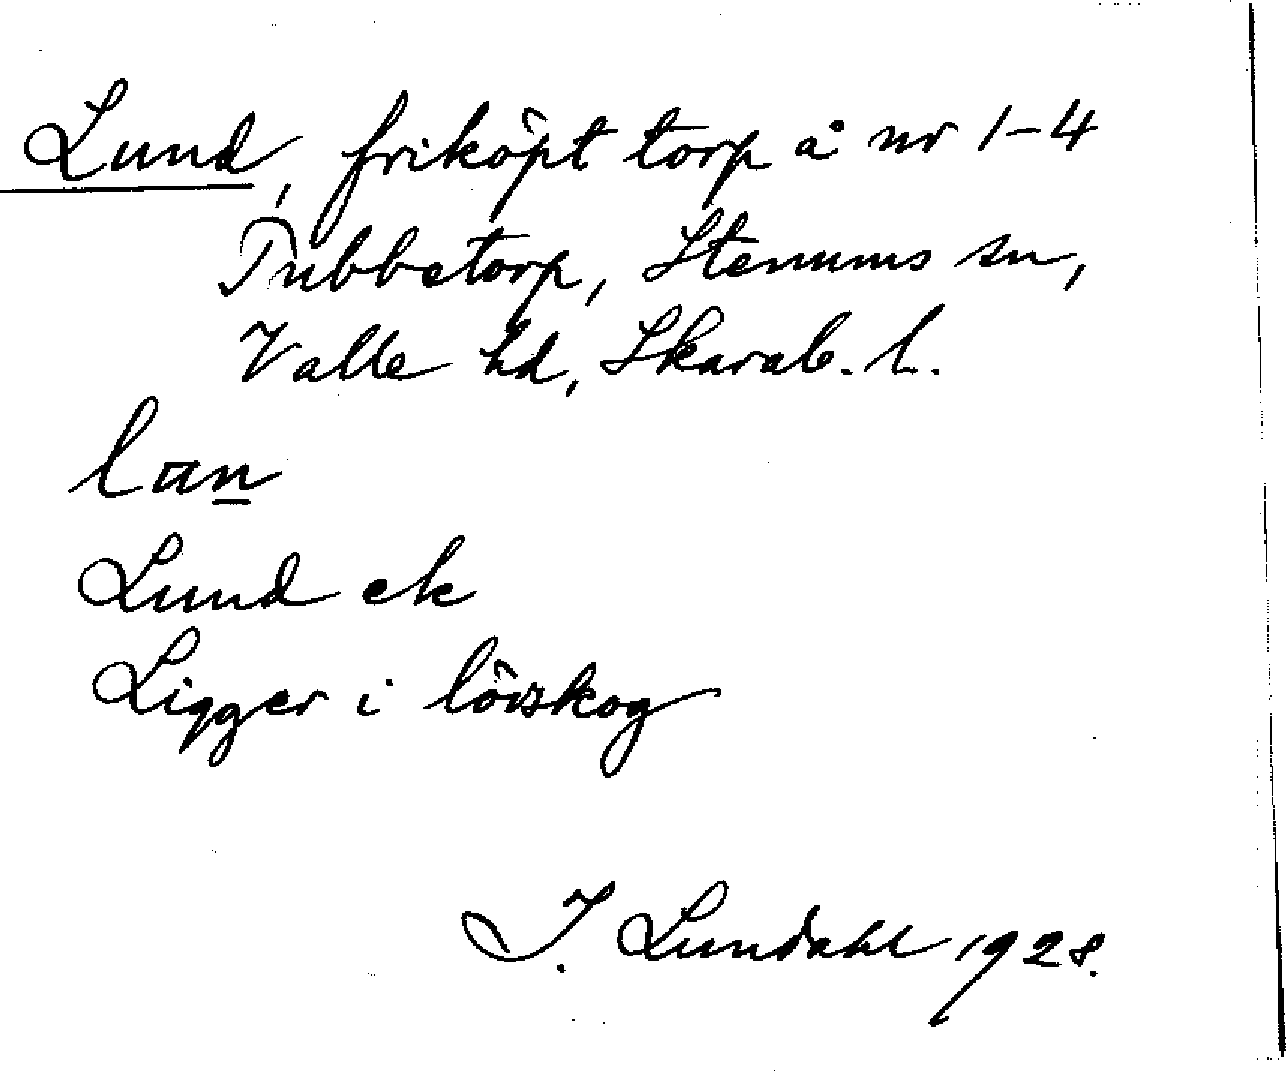 Lund, friköpt torp å nr 1-4
Tubbetorp, Stenums sn,
Valle hd, Skarab. l.
Lund ek
Ligger i lövskog
I. Lundahl 1928.